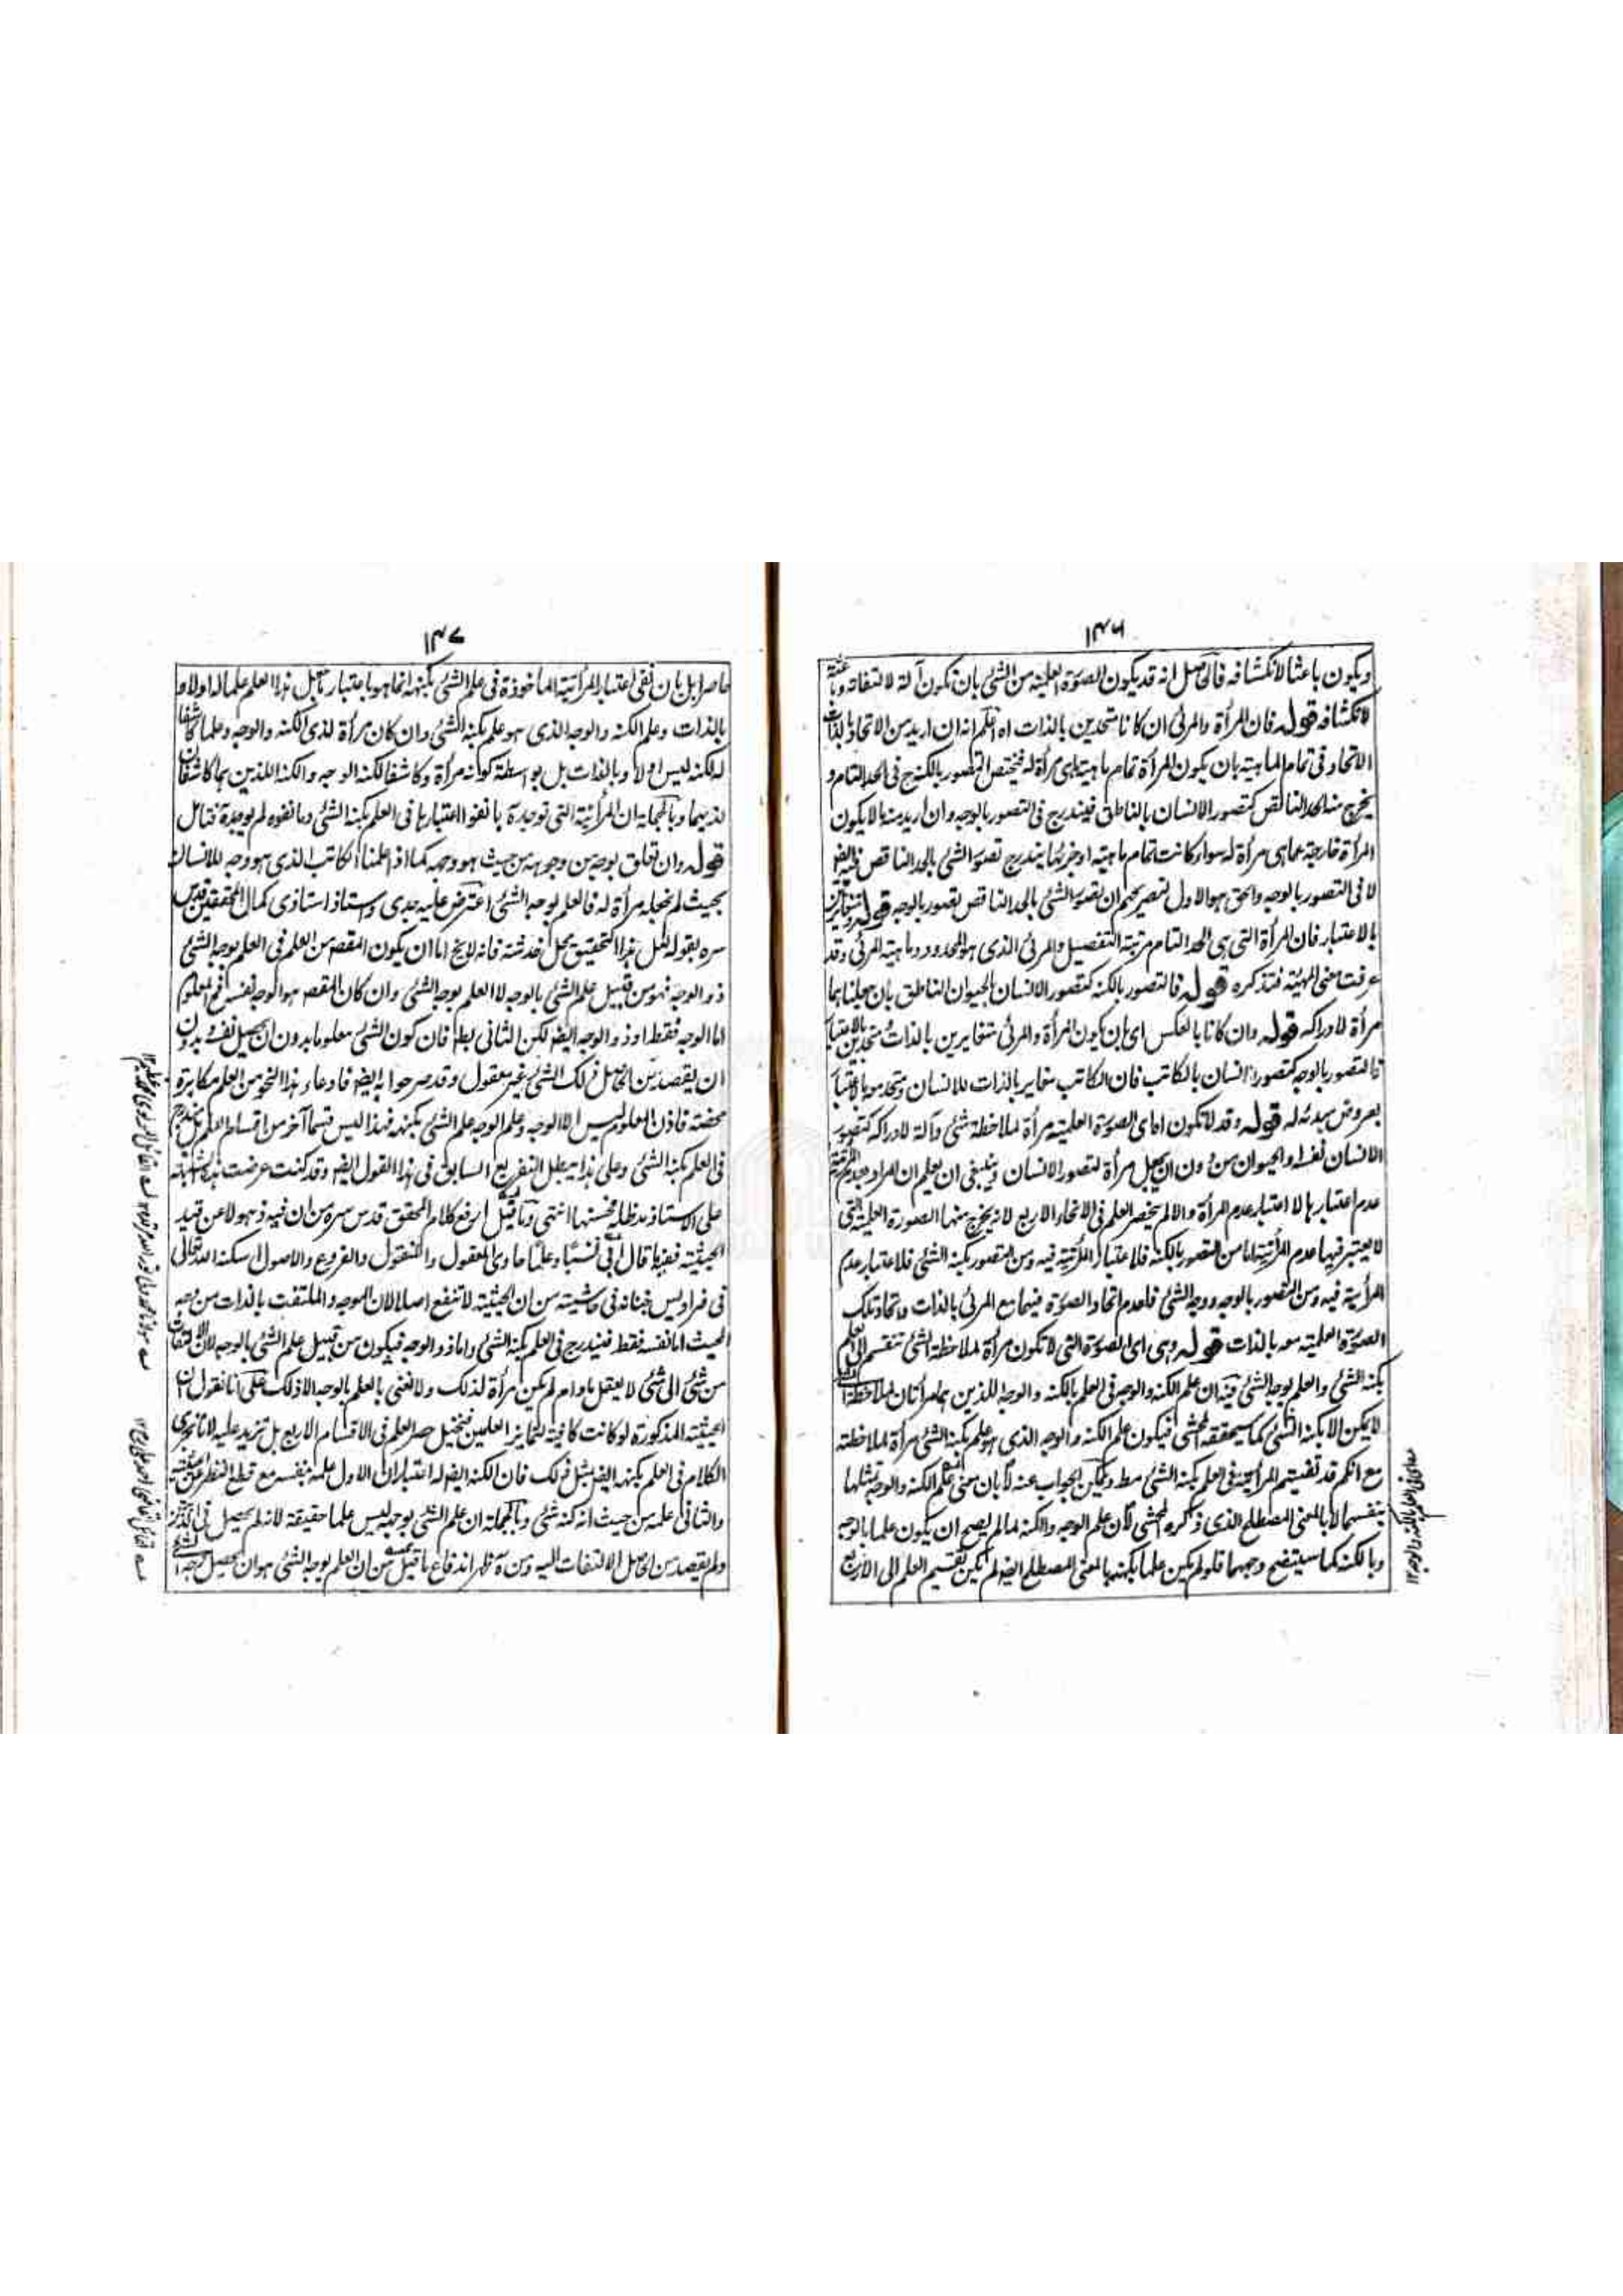 ١٣٦
ويكون باعثا لانكشافه فالحاصل انه قد يكون الصورة العلمية من الشئ بان تكون آلة لالتفاته و
لانكشافه قوله فان المرأة والمرئى ان كانا متحدين بالذات اه اعلم انه ان اريد من الاتحاد بالذات
الاتحاد فى تمام الماهية بان يكون المرأة تمام ماهية ماهى مرأة له فيختص التصور بالكنه ح فى الحد التام و
يخرج منه الحد الناقص كتصور الانسان بالناطق فيندرج فى التصور بالوجه وان اريد منه ما لا يكون
المرأة خارجة عما هى مرأة له سواء كانت تمام ماهيته او جزئها يندرج تصور الشئ بالحد الناقص فيه ايضا
لا فى التصور بالوجه والحق هو الاول لتصريحهم ان تصور الشئ بالحد الناقص تصور بالوجه قوله ومتغايرين
بالاعتبار فان المرأة التى هى الحد التام مرتبة التفصيل والمرئى الذى هو المحدود وماهية المرئى وقد
عرفت معنى المهية فتذكره قوله فالتصور بالكنه كتصور الانسان بالحيوان الناطق بان جعلناهما
مرأة لادراكه قوله وان كانا بالعكس اى بان يكون المرأة والمرئى متغايرين بالذات ومتحدين بالاعتبار
فالتصور بالوجه كتصور الانسان بالكاتب فان الكاتب مغاير بالذات للانسان ومتحد معه بالاعتبار
بعروض مبدئه له قوله وقد لا تكون اه اى الصورة العلمية مرأة لملاحظة شئ وآلة لادراكه كتصور
الانسان نفسه او الحيوان من دون ان يجعل مرأة لتصور الانسان وينبغى ان يعلم ان المراد بعدم المرئية
عدم اعتبارها لا اعتبار عدم المرأة والا لم ينحصر العلم فى الانحاء الاربع لانه يخرج منها الصورة العلمية التى
لا يعتبر فيها عدم المرأتية اما من التصور بالكنه فلاعتبار المرأتية فيه ومن التصور بكنه الشئ فلاعتبار عدم
المرأتية فيه ومن التصور بالوجه ووجه الشئ فلعدم اتحاد الصورة فيهما مع المرئى بالذات واتحاد تلك
الصورة العلمية معه بالذات قوله وهى اى الصورة التى لا تكون مرأة لملاحظة الشئ تنقسم الى العلم
بكنه الشئ والعلم بوجه الشئ فيه ان علم الكنه والوجه فى العلم بالكنه والوجه اللذين هما مرأتان لملاحظة
لا يكن الا بكنه الشئ كما سيحققه المحشى فيكون علم الكنه والوجه الذى هو علم بكنه الشئ مرأة لملاحظته
مع انكم قد نفيتم المرأتية فى العلم بكنه الشئ مط ويمكن الجواب عنه لا بان معنى علم الكنه والوجه تمثلها
بنفسها لا بالمعنى المصطلح الذى ذكره المحشى لان علم الوجه والكنه ما لم يصح ان يكون علما بالوجه
وبالكنه كما سيتضح وجهها فلو لم يكن علما بكنهه بالمعنى المصطلح ايضا لم يكن تقسيم العلم الى الاربع
١٣٧
حاصرا بل بان نفى اعتبار المرأتية الماخوذة فى علم الشئ بكنهه انما هو باعتبار ما جعل هذا العلم علما له اولا و
بالذات وعلم الكنه والوجه الذى هو علم بكنه الشئ وان كان مرأة لذى الكنه والوجه وعلما كاشفا
له لكنه ليس اولا وبالذات بل بواسطة كونه مرأة وكاشفا لكنه الوجه والكنه اللذين هما كاشفان
لذيهما وبالجملة ان المرأتية التى توجد ما نفوا اعتبارها فى العلم بكنه الشئ وما نفوه لم يوجد فتامل
قوله وان تعلق بوجه من وجوهه من حيث هو وجهه كما اذا علمنا الكاتب الذى هو وجه للانسان
بحيث لم نجعله مرأة له فالعلم بوجه الشئ اعترض عليه جدى واستاذ استاذى كمال المحققين قدس
سره بقوله لعل هذا التحقيق محل خدشة فانه لا يخ اما ان يكون المقصد من العلم فى العلم بوجه الشئ
ذو الوجه فهو من قبيل علم الشئ بالوجه لا العلم بوجه الشئ وان كان المقصد هو الوجه بنفسه فح المعلوم
اما الوجه فقط او ذو الوجه ايضا لكن الثانى بط فان كون الشئ معلوما بدون ان يحصل نفسه بدون
ان يقصد من الحاصل ذلك الشئ غير معقول وقد صرحوا به ايضا فادعاء هذا النحو من العلم مكابرة
محضة فاذن المعلوم ليس الا الوجه وعلم الوجه علم الشئ بكنهه فهذا ليس قسما آخر من اقسام العلم بل يندرج
فى العلم بكنه الشئ وعلى هذا يبطل التفريع السابق فى هذا القول ايضا وقد كنت عرضت هذه الشبهة
على الاستاذ مد ظله فحسنها انتهى وما قيل لرفع كلام المحقق قدس سره من ان فيه ذهولا عن قيد
الحيثية ففيه ما قال ابى نسبا وعلما حاوى المعقول والمنقول والفروع والاصول اسكنه الله تعالى
فى فراديس جنانه فى حاشيته من ان الحيثية لا تنفع اصلا لان الموجه والملتفت بالذات من وجه
الحيث اما نفسه فقط فيندرج فى العلم بكنه الشئ واما ذو الوجه فيكون من قبيل علم الشئ بالوجه لان الالتفات
من شئ الى شئ لا يعقل ما دام لم يكن مرأة لذلك ولا نعنى بالعلم بالوجه الا ذلك على انا نقول ان
الحيثية المذكورة لو كانت كافية لتمايز العلمين فيختل حصر العلم فى الاقسام الاربع بل تزيد عليه لانا نجرى
الكلام فى العلم بكنهه ايضا بمثل ذلك فان الكنه ايضا له اعتباران الاول علمه بنفسه مع قطع النظر عن الحيثية
والثانى علمه من حيث انه كنه شئ وبالجملة ان علم الشئ بوجهه ليس علما حقيقة لانه لم يحصل فى الذهن
ولم يقصد من الحاصل الالتفات اليه ومن ه ظهر اندفاع ما قيل من ان العلم بوجه الشئ هو ان يحصل وجه الشئ